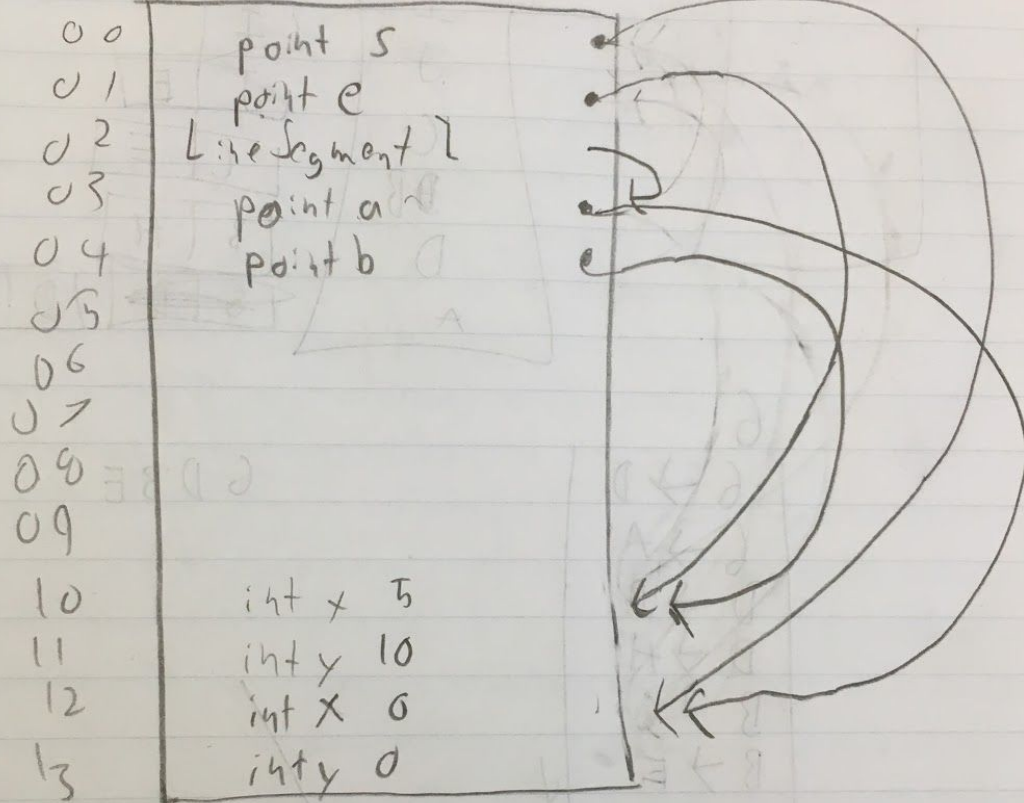 00 point s
01 point e
02 LineSegment l
03 point a
04 point b
05
06
07
08
09
10 int x 5
11 int y 10
12 int x 0
13 int y 0